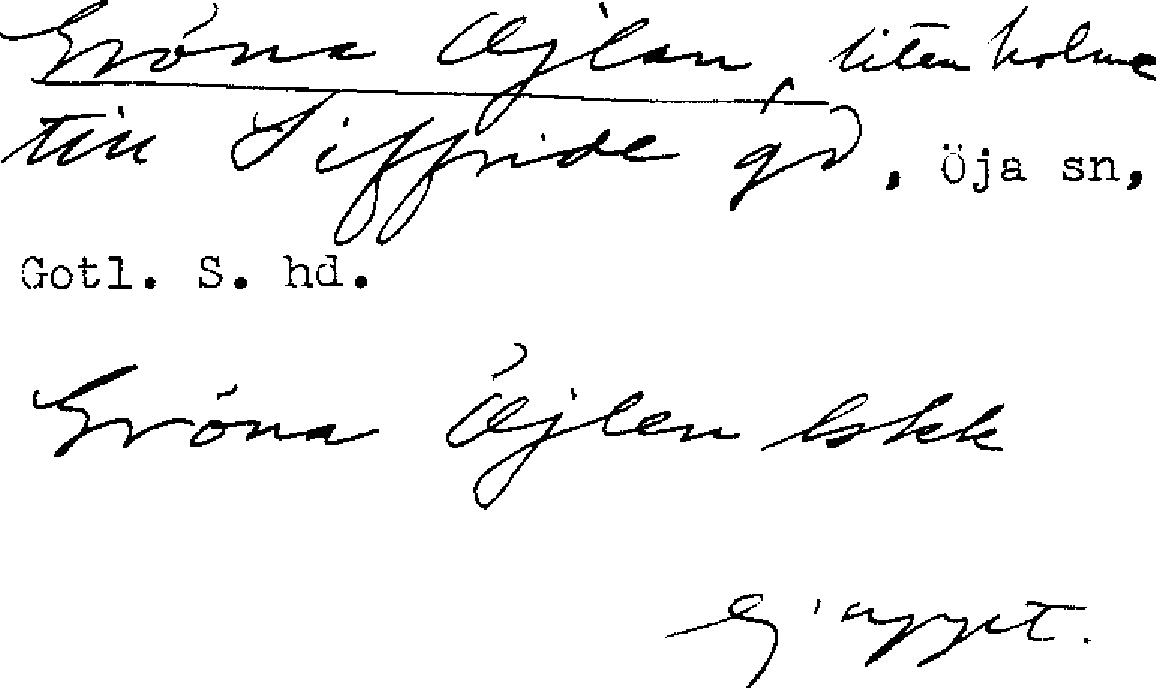 Gröna Öjlan, liten holme
till Siffride gd, Öja sn,
Gotl. S. hd.
Gröna Öjlen bskk
Ej uppt.